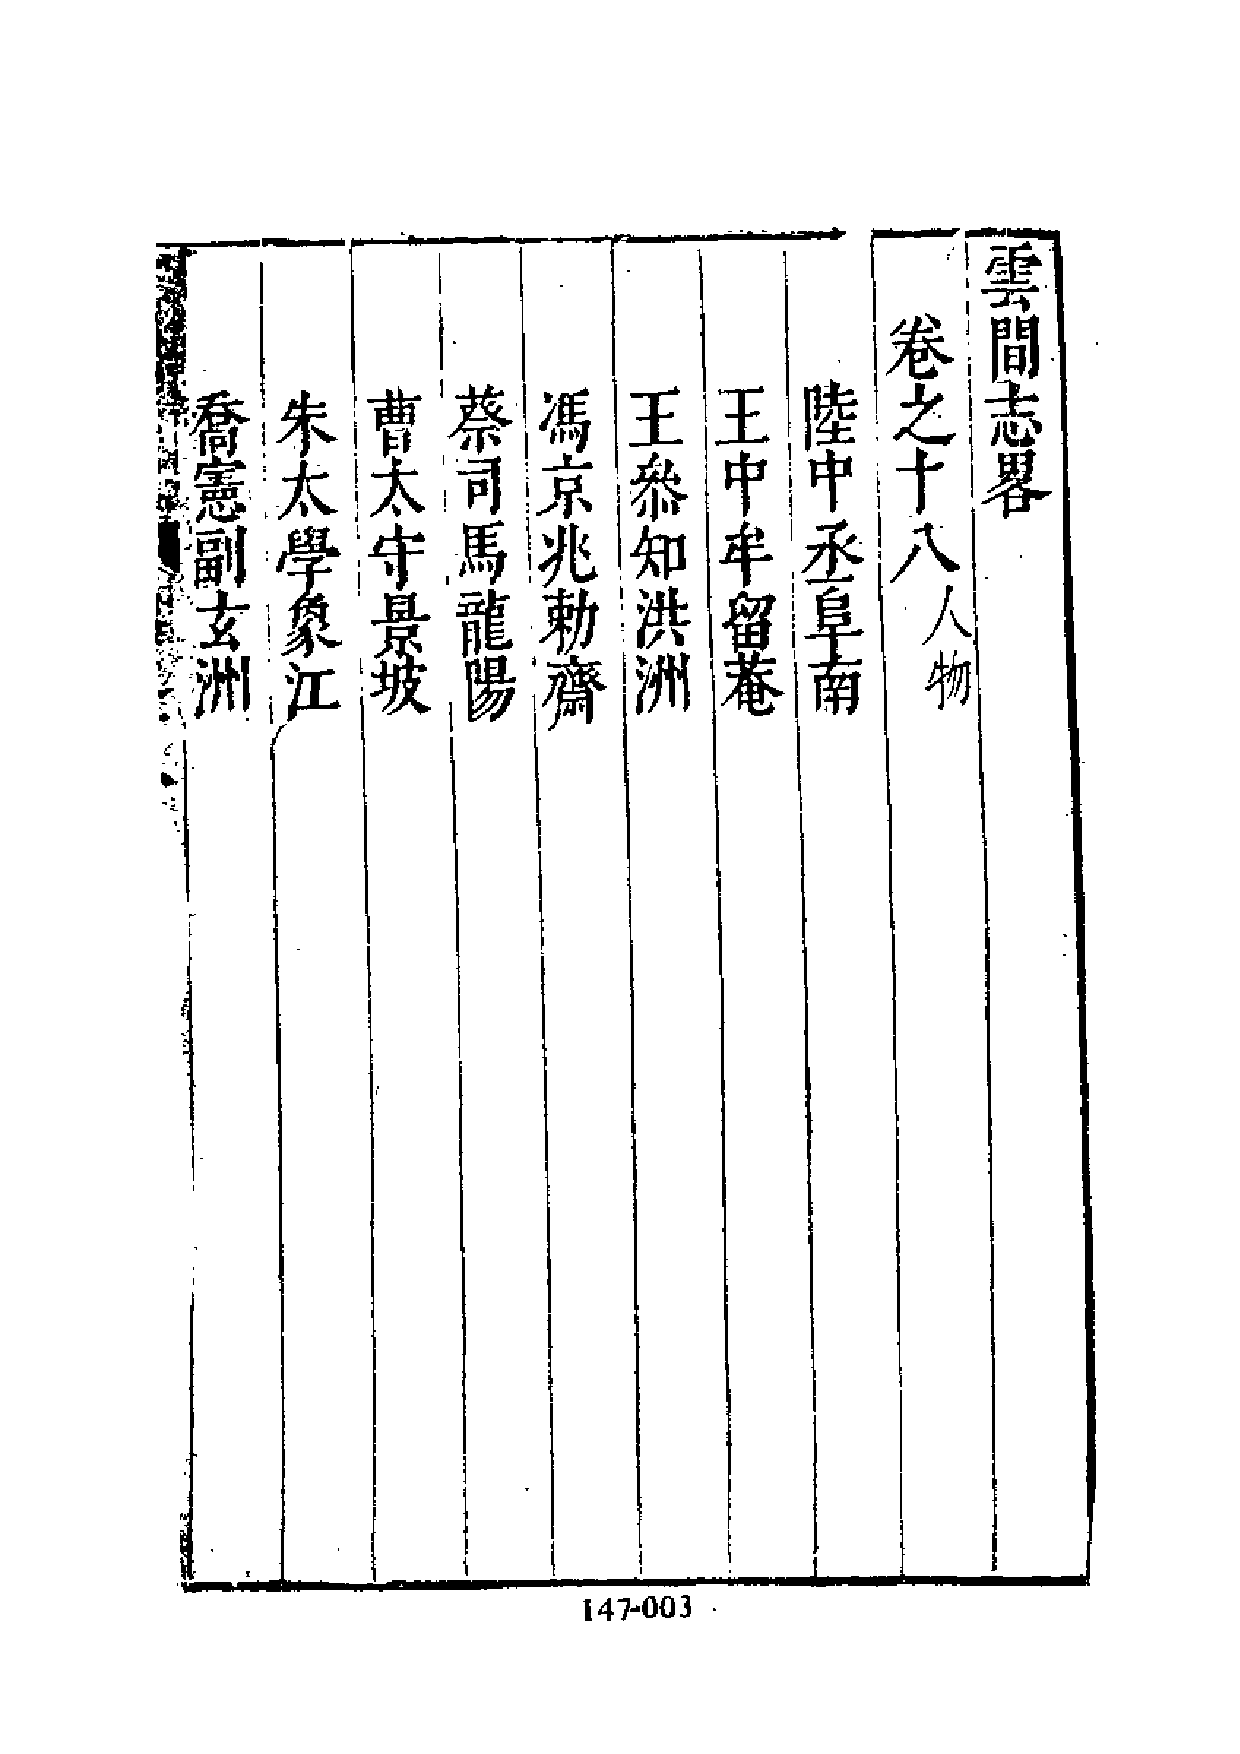 雲間志畧
卷之十八人物
陸中丞阜南
王中牟留菴
王叅知洪洲
馮京兆勅齋
蔡司馬龍陽
曹太守景坡
朱太學象江
喬憲副玄洲
147-003